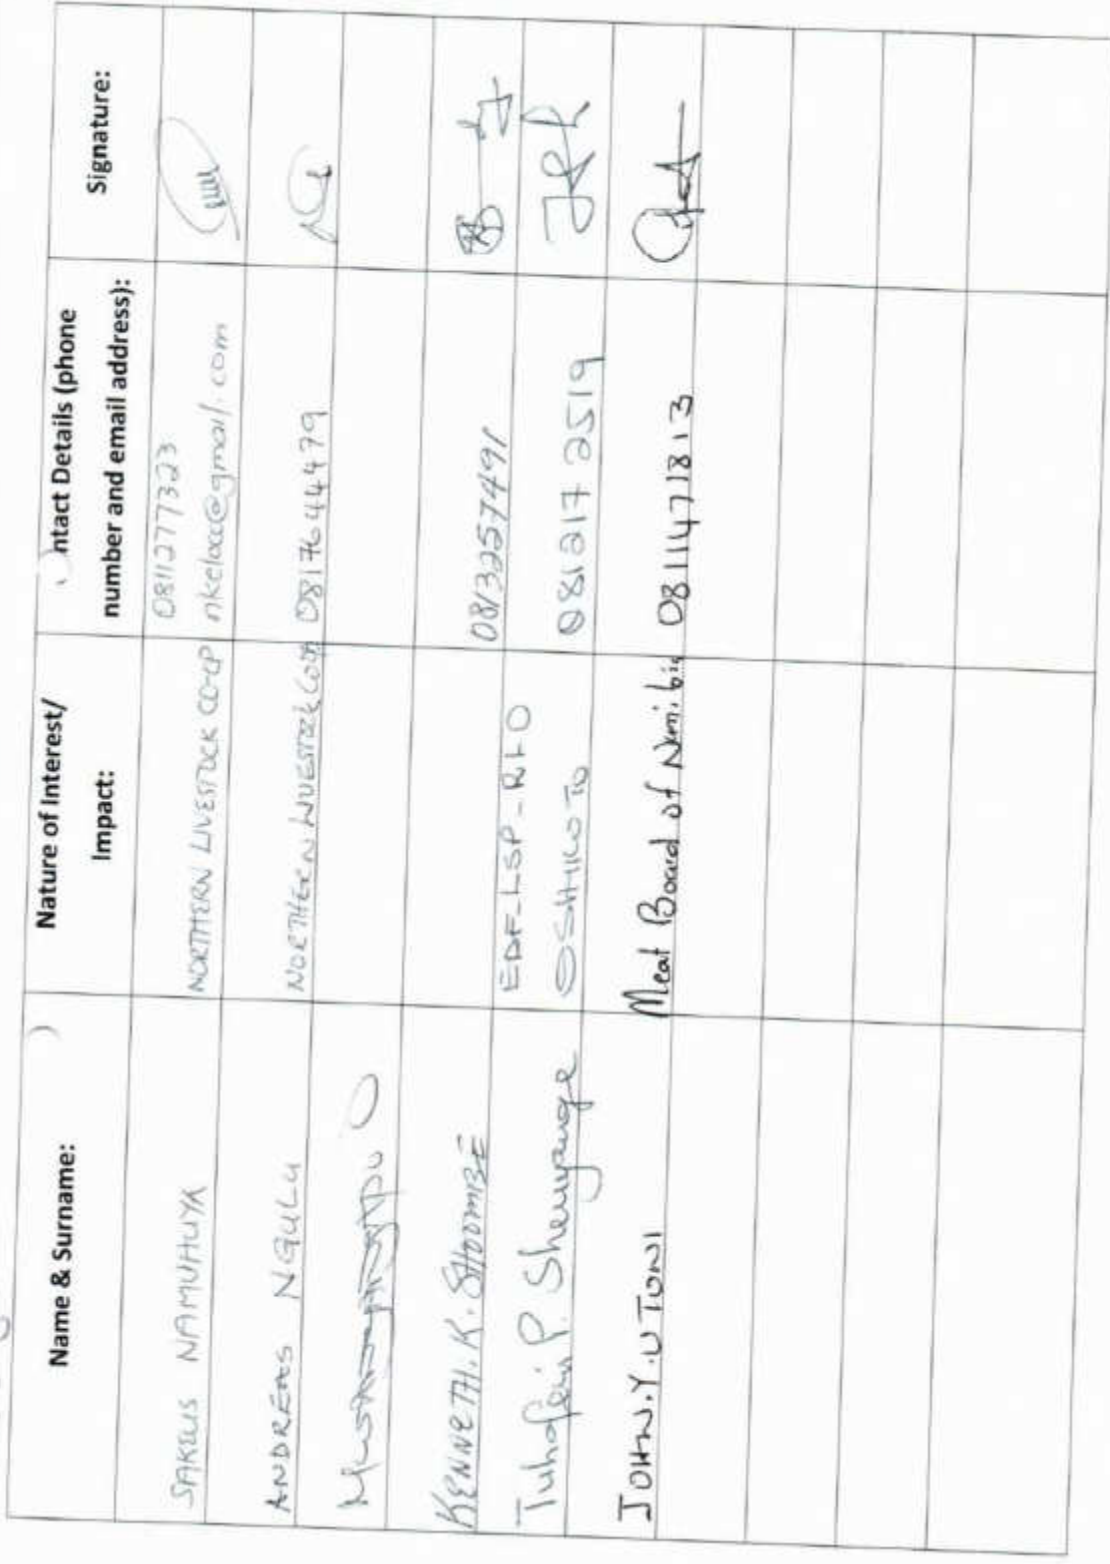 Name & Surname:
Nature of Interest/
Impact:
ntact Details (phone
number and email address):
Signature:
SAKEUS NAMUHUYA
NORTHERN LIVESTOCK CO-OP
0811277323
nkelocc@gmail.com
ANDREAS NGULU
NORTHERN LIVESTOCK COOP
0817644479
KENNETH.K. SHOOMBE
0813257491
Tuhafeni P. Sheuyange
EDF-LSP-RLO
OSHIKOTO
081217 2519
JOHN.Y.UTONI
Meat Board of Namibia
0811471813